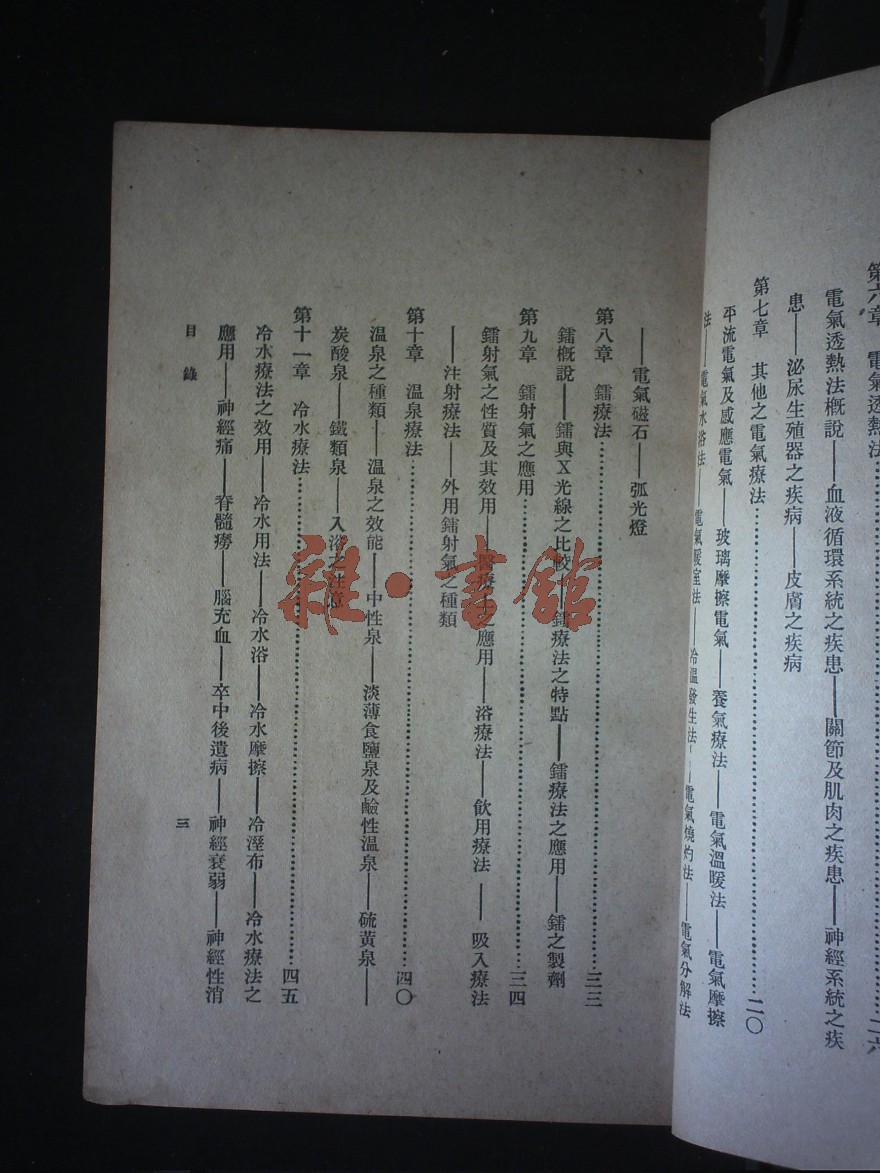 第六章　電氣透熱法…………二六
電氣透熱法概說——血液循環系統之疾患——關節及肌肉之疾患——神經系統之疾
患——泌尿生殖器之疾病——皮膚之疾病
第七章　其他之電氣療法…………二〇
平流電氣及感應電氣——玻璃摩擦電氣——養氣療法——電氣溫暖法——電氣摩擦
法——電氣水浴法——電氣暖室法——冷溫發生法——電氣燒灼法——電氣分解法
——電氣磁石——弧光燈
第八章　鐳療法…………三三
鐳概說——鐳與X光線之比較——鐳療法之特點——鐳療法之應用——鐳之製劑
第九章　鐳射氣之應用…………三四
鐳射氣之性質及其效用——醫療上之應用——浴療法——飲用療法——吸入療法
——注射療法——外用鐳射氣之種類
第十章　溫泉療法…………四〇
溫泉之種類——溫泉之效能——中性泉——淡薄食鹽泉及鹼性溫泉——硫黃泉——
炭酸泉——鐵類泉——入浴之注意
第十一章　冷水療法…………四五
冷水療法之效用——冷水用法——冷水浴——冷水摩擦——冷溼布——冷水療法之
應用——神經痛——脊髓癆——腦充血——卒中後遺病——神經衰弱——神經性消
目錄
三
雜·書館